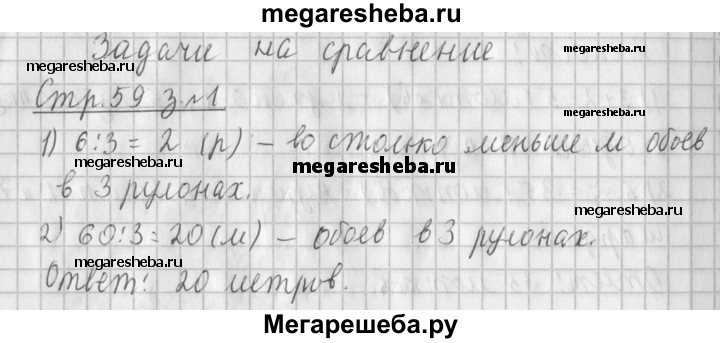 megaresheba.ru
Задачи на сравнение
megaresheba.ru
megaresheba.ru
Стр. 59 з №1
1) 6:3=2 (р) – во столько меньше м обоев
megaresheba.ru
в 3 рулонах.
megaresheba.ru
2) 60:3=20 (м) – обоев в 3 рулонах.
megaresheba.ru
Ответ: 20 метров.
megaresheba.ru
Мегарешеба.ру